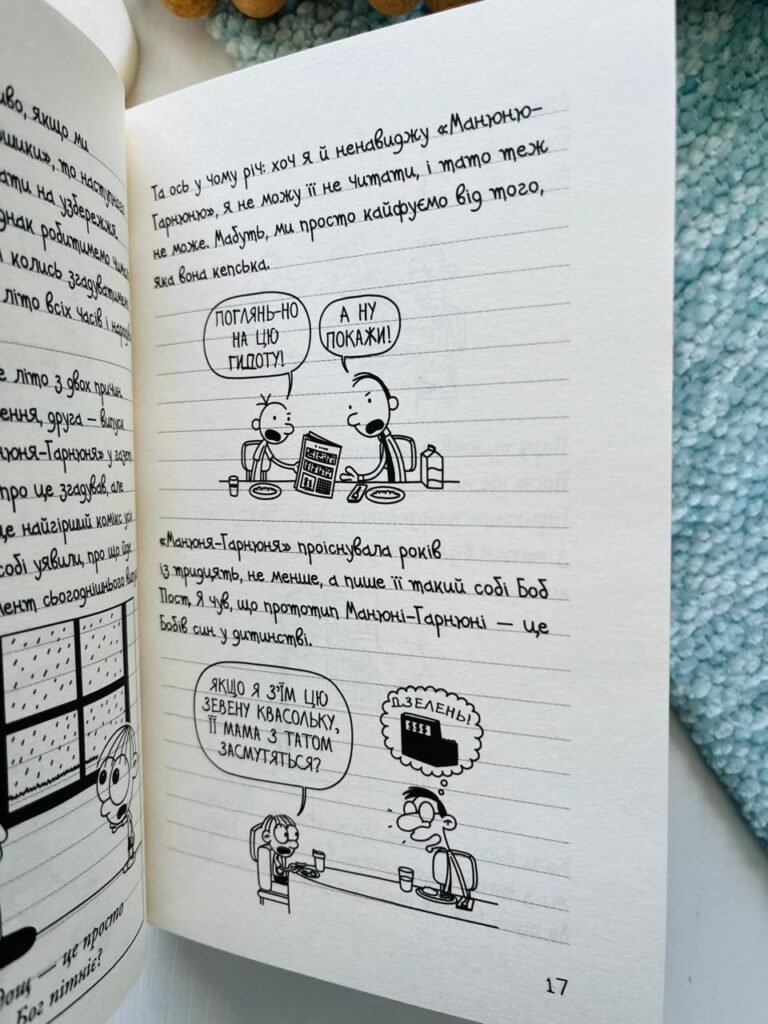 иво, якщо ми
шики», то наступного
ати на узбережжя.
днак робитимемо
і колись згадуватимемо
літо всіх часів і народів
е літо з двох причин
ення, друга — випуск
нюня-Гарнюня» у газеті
про це згадував, але
це найгірший комікс усіх
собі уявили, про що йде
мент сьогоднішнього
дощ — це просто
Бог пітніє?
Та ось у чому річ: хоч я й ненавиджу «Манюню-
Гарнюню», я не можу її не читати, і тато теж
не може. Мабуть, ми просто кайфуємо від того,
яка вона кепська.
ПОГЛЯНЬ-НО
НА ЦЮ
ГИДОТУ!
А НУ
ПОКАЖИ!
«Манюня-Гарнюня» проіснувала років
із тридцять, не менше, а пише її такий собі Боб
Пост. Я чув, що прототип Манюні-Гарнюні — це
Бобів син у дитинстві.
ЯКЩО Я З'ЇМ ЦЮ
ЗЕВЕНУ КВАСОЛЬКУ,
ЇЇ МАМА З ТАТОМ
ЗАСМУТЯТЬСЯ?
ДЗЕЛЕНЬ!
17